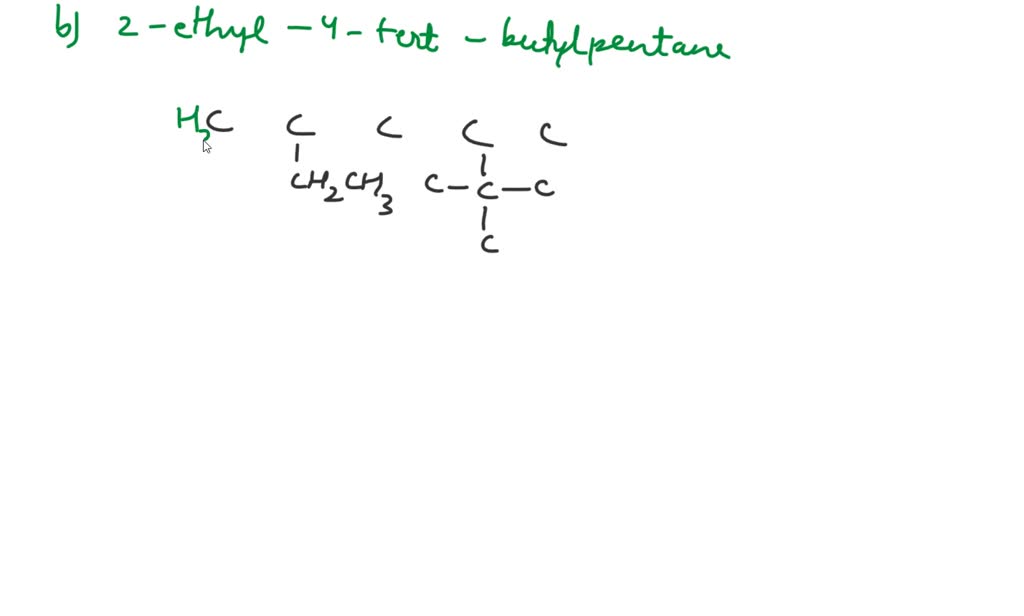 b) 2-ethyl-4-tert-butylpentane
H3C C C C C
CH2CH3 C-C-C
C